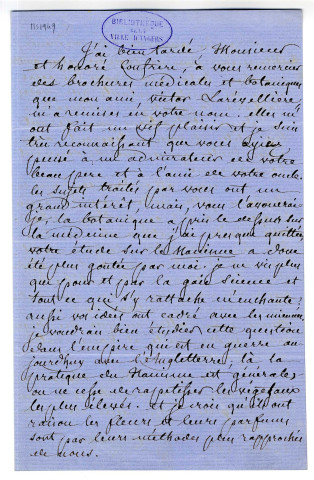 BIBLIOTHÈQUE
DE LA
VILLE D'ANGERS
J'ai bien tardé, Monsieur
et honoré Confrère, à vous remercier
des brochures médicales et botaniques
que mon ami, Victor Larévellière,
m'a remises en votre nom. elles m'
ont fait un vif plaisir et je suis
très reconnaissant que vous ayez
pensé à un admirateur de votre
beau père et à l'ami de votre oncle.
les sujets traités par vous ont un
grand intérêt, mais, vous l'avouerai
je, la botanique a pris le dessus sur
la médecine que j'ai presque quittée,
votre étude sur le Nanisme a donc
été plus goûtée par moi. je ne vis plus
que pour et par la gaie science et
tout ce qui s'y rattache m'enchante;
aussi vos idées ont cadré avec les miennes.
je voudrais bien étudier cette question
dans l'empire qui est en guerre au
jourd'huy avec l'Angleterre, là la
pratique du Nanisme est générale
on ne cesse de rapetisser les végétaux
les plus élevés. et je crois qu'ils ont
raison les fleurs et leurs parfums
sont par leurs méthodes plus rapprochés
de nous.